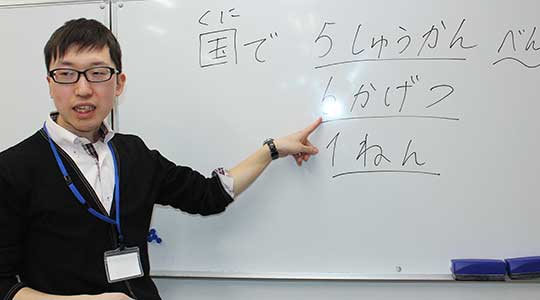 くに
国で 5しゅうかん べん
6かげつ
1ねん